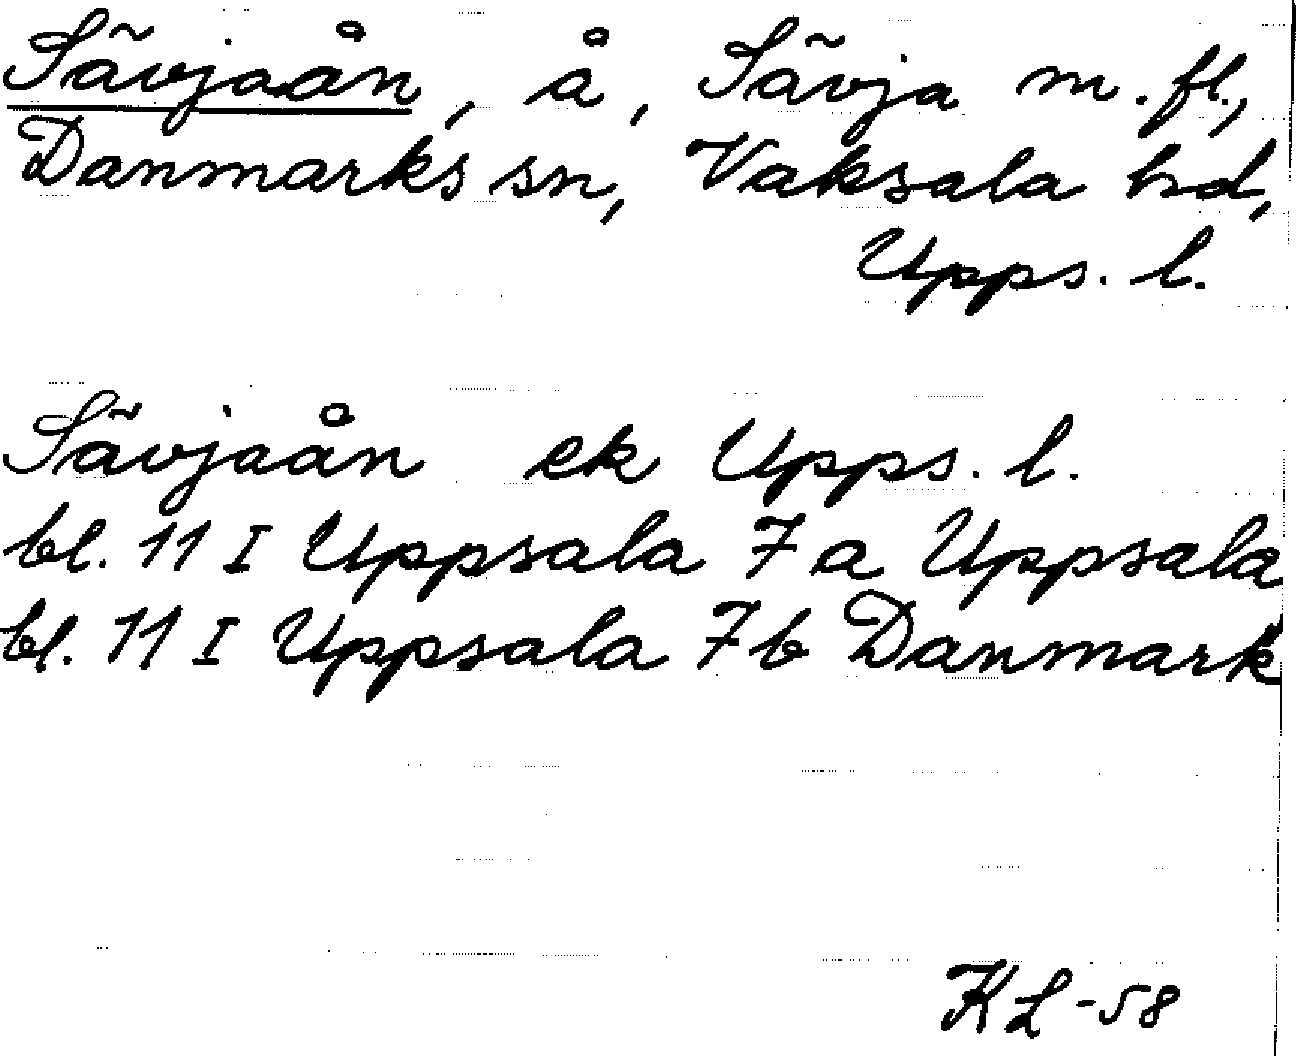 Sävjaån, å, Sävja m. fl.,
Danmarks sn, Vaksala hd,
Upps. l.
Sävjaån ek Upps. l.
bl. 11 I Uppsala 7 a Uppsala
bl. 11 I Uppsala 7 b Danmark
KL -58